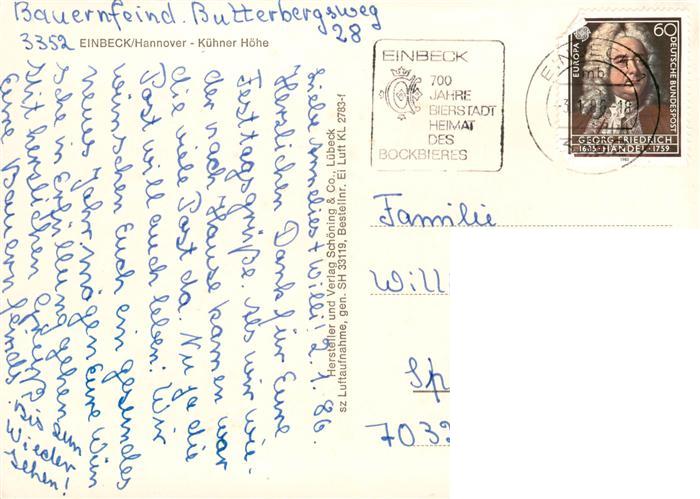 Bauernfeind. Butterbergsweg
28
3352 EINBECK/Hannover - Kühner Höhe
Liebe Annelies + Willi! 2.1.86.
Herzlichen Dank für Eure
Festtagsgrüße. Als wir wie-
der nach Hause kamen war
die viele Post da. Nu ja die
Post will auch leben. Wir
wünschen Euch ein gesundes
neues Jahr. Mögen Eure Wün
sche in Erfüllung gehen.
Mit herzlichen Grüßen
Eure Bauernfeinds.
Bis zum
Wieder
sehen!
Hersteller und Verlag Schöning & Co., Lübeck
sz Luftaufnahme, gen. SH 33119, Bestellnr. Ei Luft KL 2783-f
EINBECK
700
JAHRE
BIERSTADT
HEIMAT
DES
BOCKBIERES
EUROPA
60
DEUTSCHE BUNDESPOST
GEORG FRIEDRICH
1685 HÄNDEL 1759
1985
Familie
Willi
Sp
7032